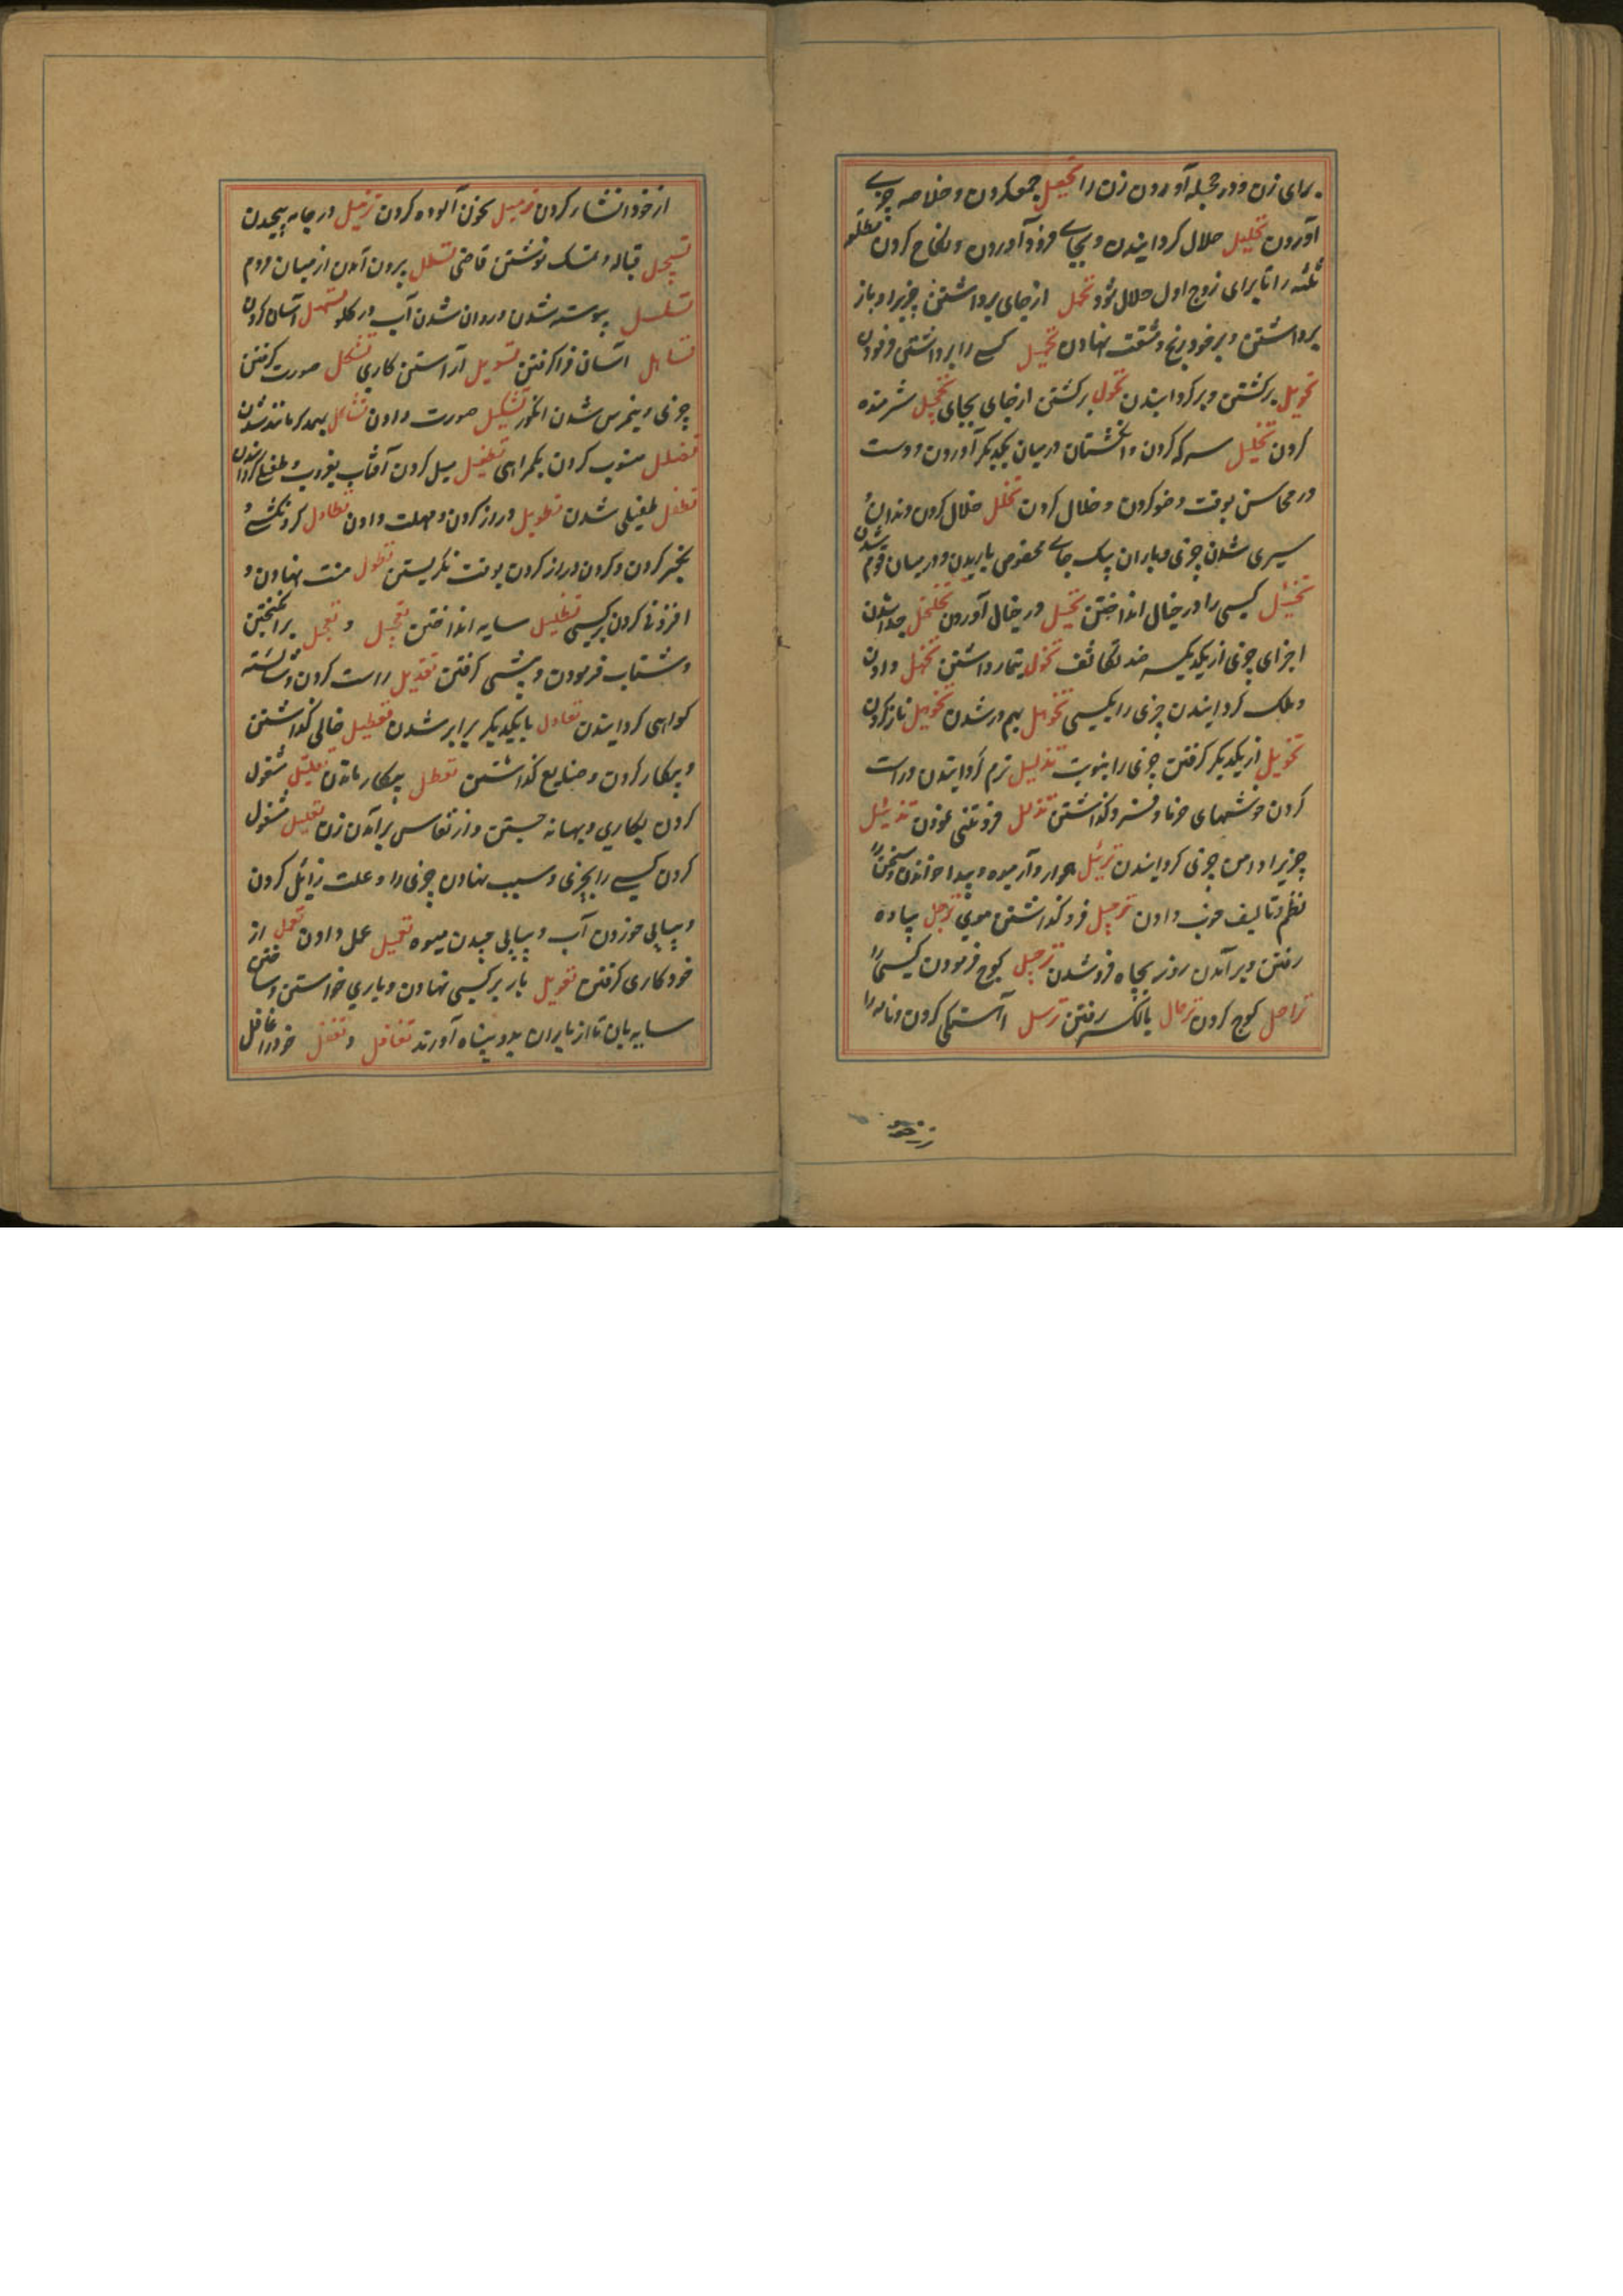 برای زن و در حجله آوردن زن را تحصیل جمع کردن و خلاصه چیزی
آوردن تحلیل حلال کردانیدن و بجای فرود آوردن و نکاح کردن مطلقه
ثلثه را تا برای زوج اول حلال شود تحمل از جای برداشتن چیزیرا و باز
برداشتن و بر خود رنج و مشقت نهادن تحمیل کسے را برداشتن فرمودن
تحویل برکشتن و برکردانیدن تحول برکشتن از جای بجای تخجیل شرمنده
کردن تخلیل سرکه کردن و انکشتان در میان یکدیکر آوردن و دست
در محاسن بوقت وضو کردن و خلال کردن تخلل خلال کردن دندان و
سپری شدن چیزی و باران بیک جاے مخصوص باریدن و در میان قوم شدن
تخییل کسی را در خیال انداختن تخیل در خیال آوردن تخلخل جدا شدن
اجزای چیزی از یکدیکر ضد تکاثف تخول تیمار داشتن دادن
و ملک کردانیدن چیزی را بکسی
از یکدیکر کرفتن چیزی را بنوبت تذلیل نرم کردانیدن و راست
کردن خوشهای خرما و فرو کذاشتن تذلل فروتنی نمودن تذییل
چیزیرا دامن چیزی کردانیدن ترتیل هموار و آرمیده و پیدا خواندن و سخن را
نظم و تالیف خوب دادن ترجیل فرو کذاشتن موی ترجل پیاده
رفتن و بر آمدن روز بچاه فرو شدن ترحیل کوچ فرمودن کسی را
تراحل کوچ کردن رفتن ترسل آهستکی کردن و نامه را
از خود انشا کردن ترمیل بخون آلوده کردن تزمیل در جامه پیچیدن
تسجیل قباله و تمسک نوشتن قاضی تسلل برون آمدن از میان مردم
تسلسل پیوسته شدن و روان شدن آب در کلو تسهیل آسان کردن
تساهل آسان فرا کرفتن تسویل آراستن کاری تشکل صورت کرفتن
چیزی و نیمرس شدن انکور تشکیل صورت دادن تشاکل بهمدکر مانند شدن
تضلیل منسوب کردن بکمراهی تطفیل میل کردن آفتاب بغروب و طفیلے کردانیدن
تطفل طفیلی شدن تطویل دراز کردن و مهلت دادن تطاول کردنکشے و
تجبر کردن و کردن دراز کردن بوقت نکریستن تطول منت نهادن و
افزونی کردن بر کسی تظلیل سایه انداختن تعجیل و تعجل برانکیختن
و شتاب فرمودن و پیشی کرفتن تعدیل راست کردن و شایسته
کواهی کردانیدن تعادل با یکدیکر برابر شدن تعطیل خالی کذاشتن
و بیکار کردن و ضایع کذاشتن تعطل بیکار ماندن تعلیل مشغول
کردن بکاری و بهانه جستن و از نفاس بر آمدن زن تعلیل مشغول
کردن کسے را بچیزی و سبب نهادن چیزی را و علت زائل کردن
و پیاپی خوردن آب و پیاپی چیدن میوه تعمیل عمل دادن تعمل از
خود کاری کرفتن تعویل بار بر کسی نهادن و یاری خواستن و ساختن
سایه بان تا از باران بدو پناه آورند تغافل و تغفل خود را غافل